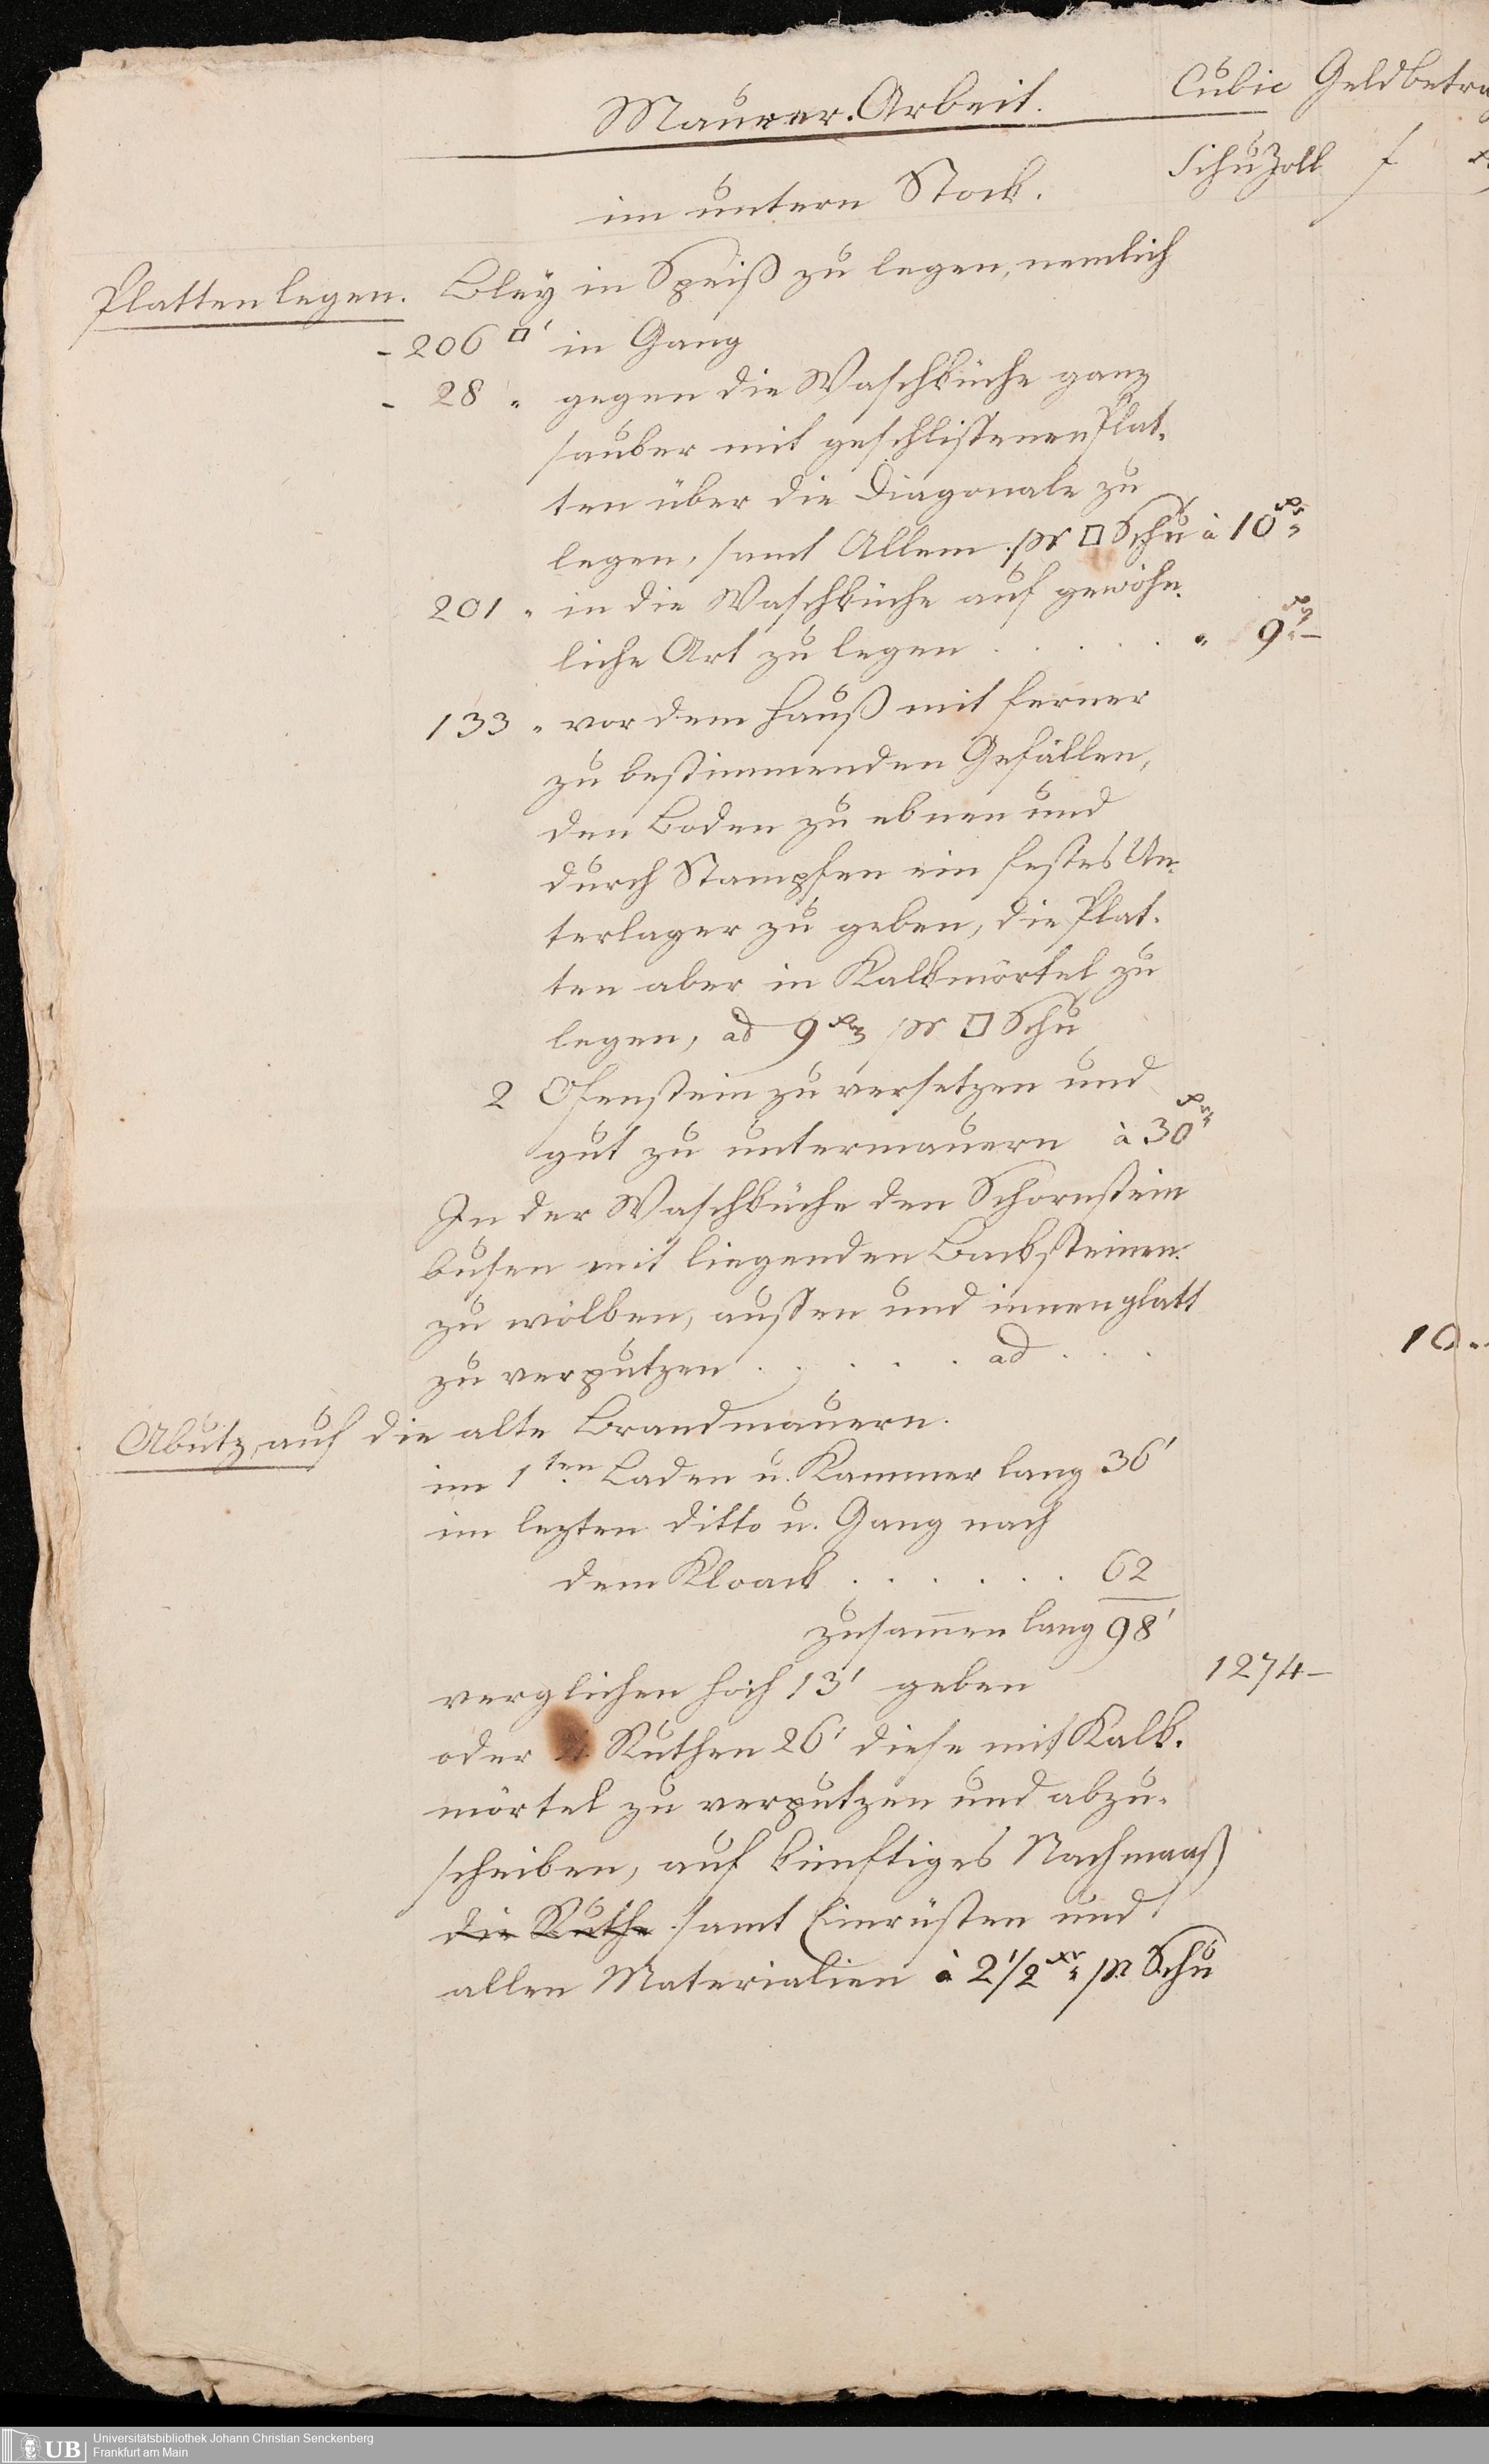 Maurer. Arbeit.
Cubic Geldbetra
Schu Zoll f x
im untern Stock.
Platten legen. Bley in Speiß zu legen, nemlich
- 206 □' in Gang
- 28 " gegen die Waschküche ganz
sauber mit geschliffenen Plat.
ten über die Diagonale zu
legen, samt Allem pr □ Schu à 10 xr
201 " in die Waschküche auf gewöhn.
liche Art zu legen . . . . . " 9 xr –
133 " vor dem Hauß mit ferner
zu bestimmenden Gefällen,
den Boden zu ebnen und
durch Stampfen ein festes Un.
terlager zu geben, die Plat.
ten aber in Kalkmörtel zu
legen, ad 9 xr pr □ Schu
2 Ofenstein zu versetzen und
gut zu untermauern à 30 xr
In der Waschküche den Schornstein
busen mit liegenden Backsteinen
zu wölben, aussen und innen glatt
zu verputzen . . . . . ad . . . 10 "
Abutz, auf die alte Brandmauern.
im 1ten Laden u. Kammer lang 36'
im lezten ditto u. Gang nach
dem Kloack . . . . . . 62
zusamen lang 98'
verglichen hoch 13' geben 1274 –
oder Ruthen 26' diese mit Kalk.
mörtel zu verputzen und abzu.
scheiben, auf künftiges Nachmaas
die Ruthe samt Einrüsten und
allen Materialien à 2 1/2 xr pr Schu
UB
Universitätsbibliothek Johann Christian Senckenberg
Frankfurt am Main